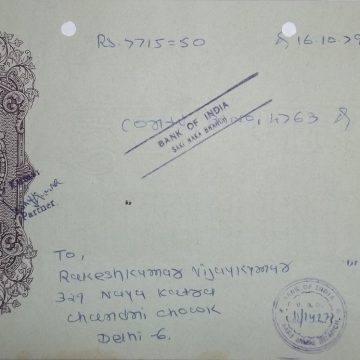 Rs. 7715=50 16.10.79
BANK OF INDIA
SAKI NAKA BRANCH
no, 4763
Partner.
To,
Rakeshkumar Vijaykumar
329 Naya Katra
Chandni Chowk
Delhi-6.
BANK OF INDIA